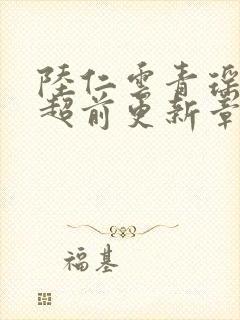 陸仁雲青瑶
超前更新章
福基